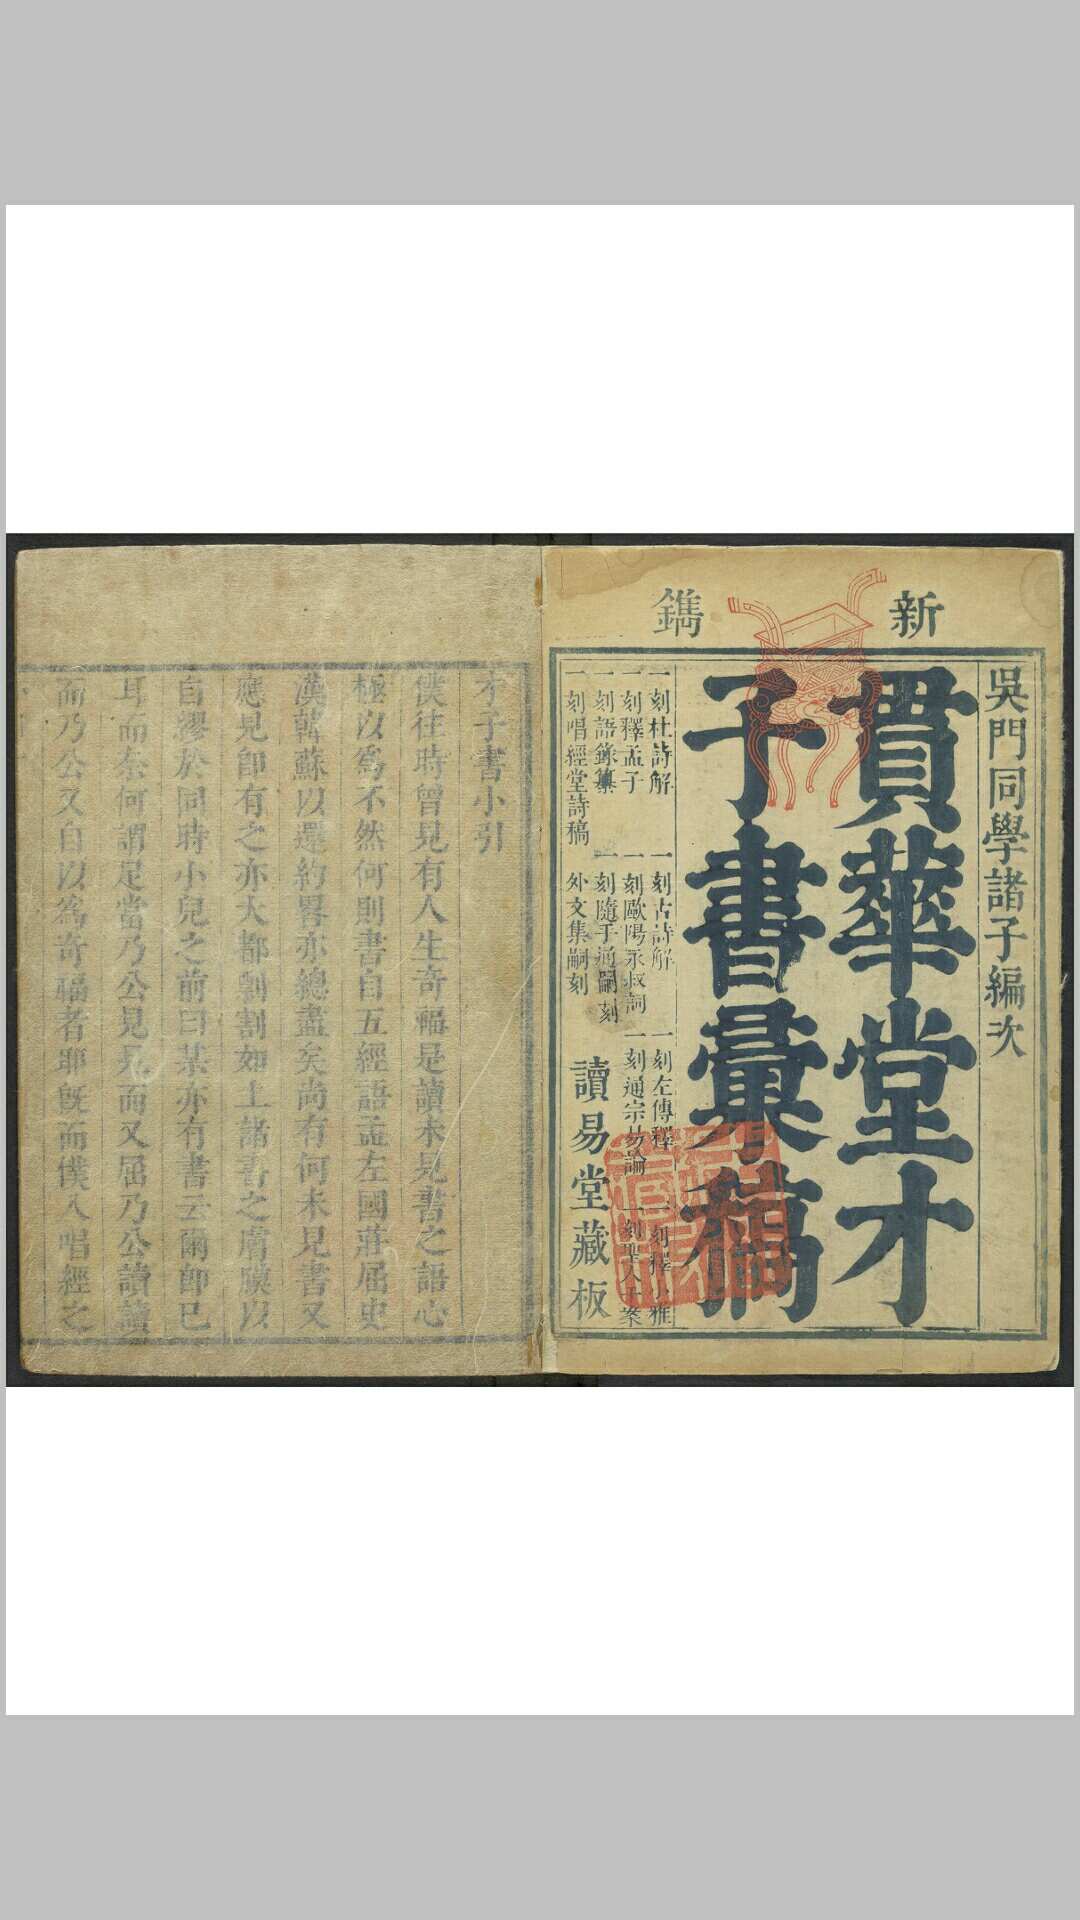 新鐫
吳門同學諸子編次
貫華堂才
子書彙稿
一刻杜詩解 一刻古詩解 一刻左傳釋 一刻釋小雅
一刻釋孟子 一刻歐陽永叔詞 一刻通宗易論 一刻聖人千案
一刻語錄纂 一刻隨手通嗣刻
一刻唱經堂詩稿 外文集嗣刻
讀易堂藏板
才子書小引
僕往時曾見有人生奇福是讀未見書之語心
極以爲不然何則書自五經語孟左國莊屈史
漢韓蘇以還約畧亦總盡矣尚有何未見書又
應見卽有之亦大都剽割如上諸書之膚膜以
自繆於同時小兒之前曰某亦有書云爾卽已
耳而奈何謂足當乃公見見而又屈乃公讀讀
而乃公又自以爲奇福者耶旣而僕入唱經之